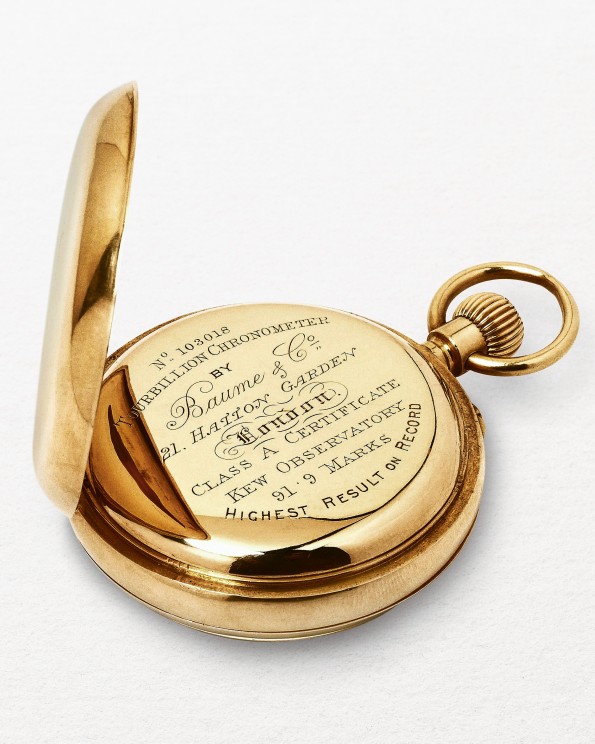 No. 103018
TOURBILLION CHRONOMETER
BY
Baume & Co.
21. HATTON GARDEN
London.
CLASS A CERTIFICATE
KEW OBSERVATORY.
91·9 MARKS
HIGHEST RESULT ON RECORD